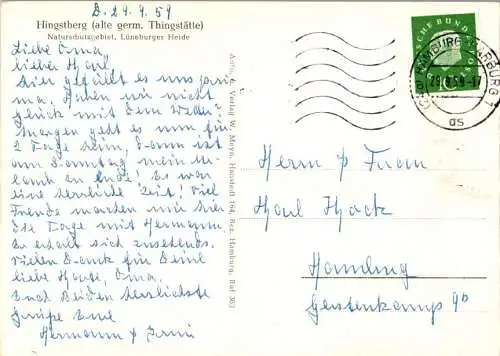 B. 29.9.59
Hingstberg (alte germ. Thingstätte)
Naturschutzgebiet, Lüneburger Heide
Liebe Oma,
lieber Karl
hier gefällt es uns prima.
Haben wir nicht
Glück mit dem Wetter
Morgen geht es nun für
2 Tage heim, dann ist
am Sonntag mein Urlaub
zu Ende! Es war
eine herrliche Zeit! Viel
Freude machen mir hier
die Tage mit Hermann.
Er erholt sich zusehends.
Vielen Dank für Deine
liebe Karte, Oma.
Euch Beiden herzlichste
Grüße Eure
Hermann &
Verlag W. Meyn, Hanstedt 184, Bez. Hamburg, Ruf 303
HAMBURG-HARBURG 1
29.9.59-17
as
Herrn & Frau
Karl Hack
Hamburg
Gerstenkamp 9b